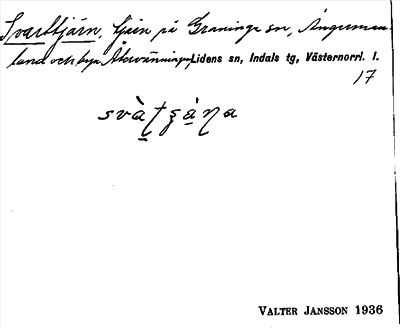 Svarttjärn, tjärn på Graninge sn, Ångerman-
land och byn Återvänningen, Lidens sn, Indals tg, Västernorrl. l.
17
VALTER JANSSON 1936